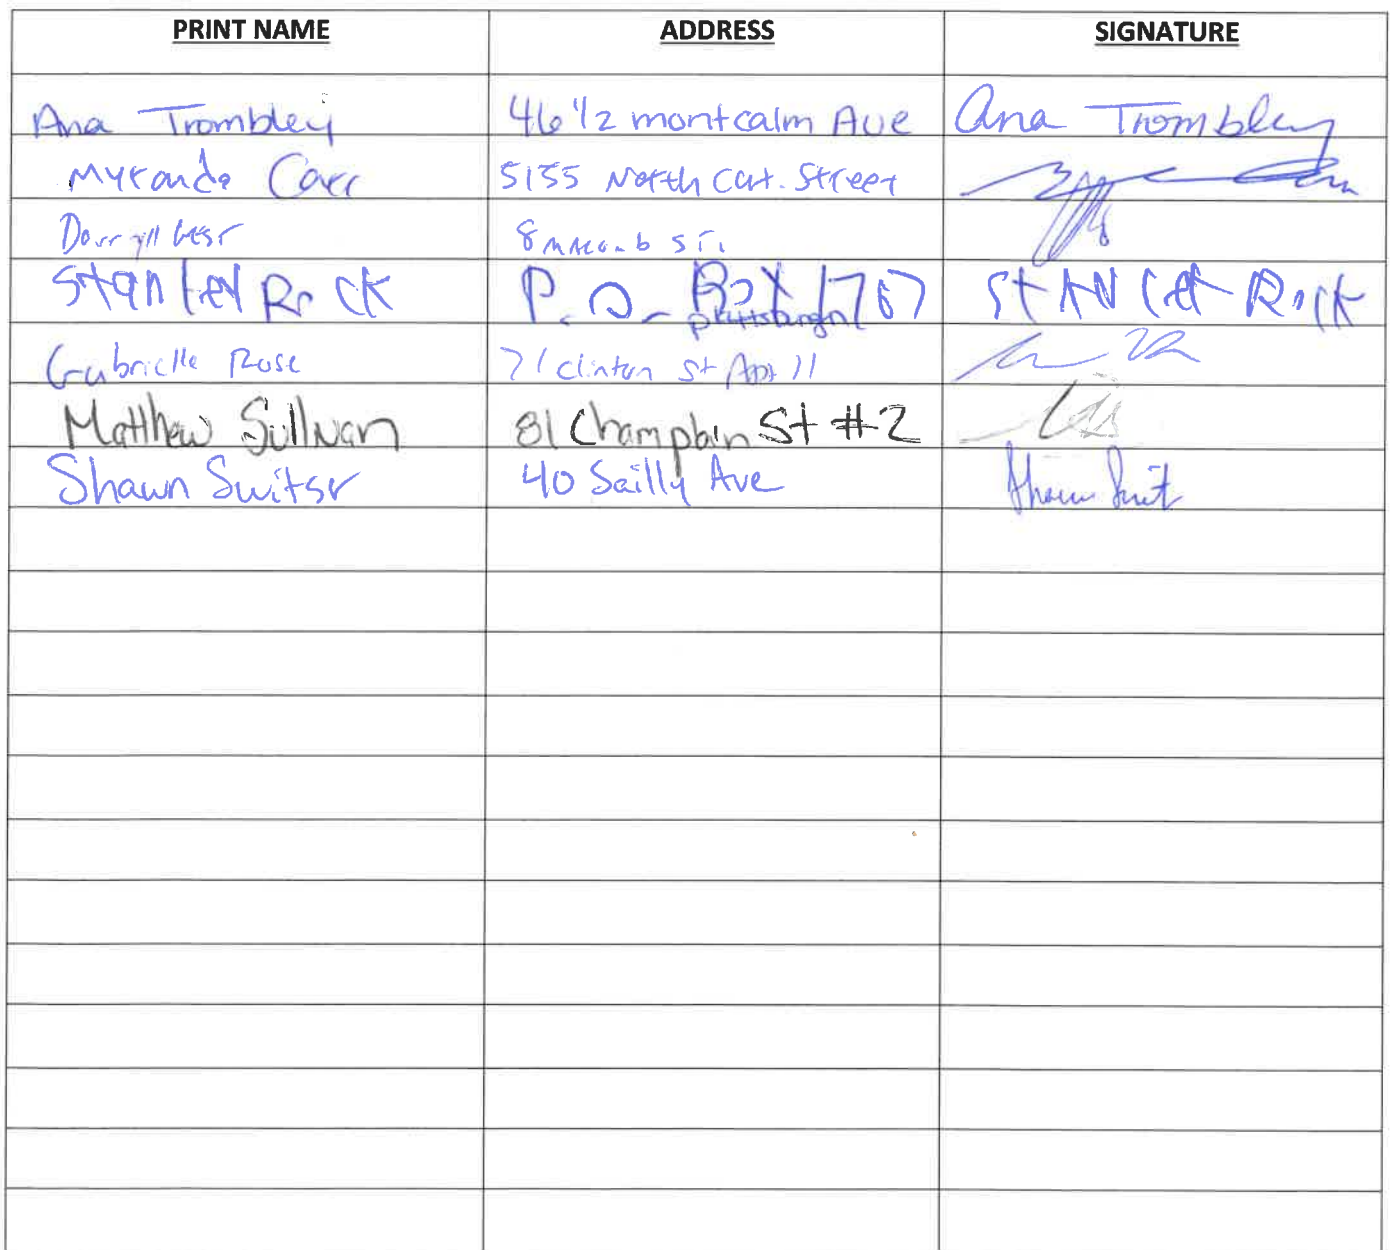 PRINT NAME ADDRESS SIGNATURE
Ana Trombley 46 1/2 montcalm Ave Ana Trombley
Myranda Carr 5155 North Cat. Street
8 macomb st.
Stanley Rock P.O. Box 1767 Stanley Rock
plattsburgh
Gabrielle Rose 71 Clinton St Apt 11
Matthew Sullivan 81 Champlain St #2
Shawn Switsr 40 Sailly Ave Shawn Swit